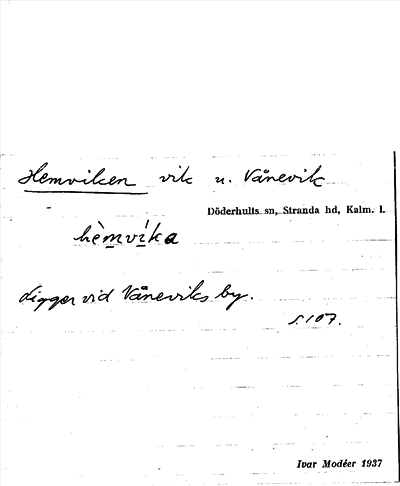 Hemviken vik u. Vånevik
Döderhults sn, Stranda hd, Kalm. l.
hèmvíka
Ligger vid Våneviks by.
s. 107.
Ivar Modéer 1937